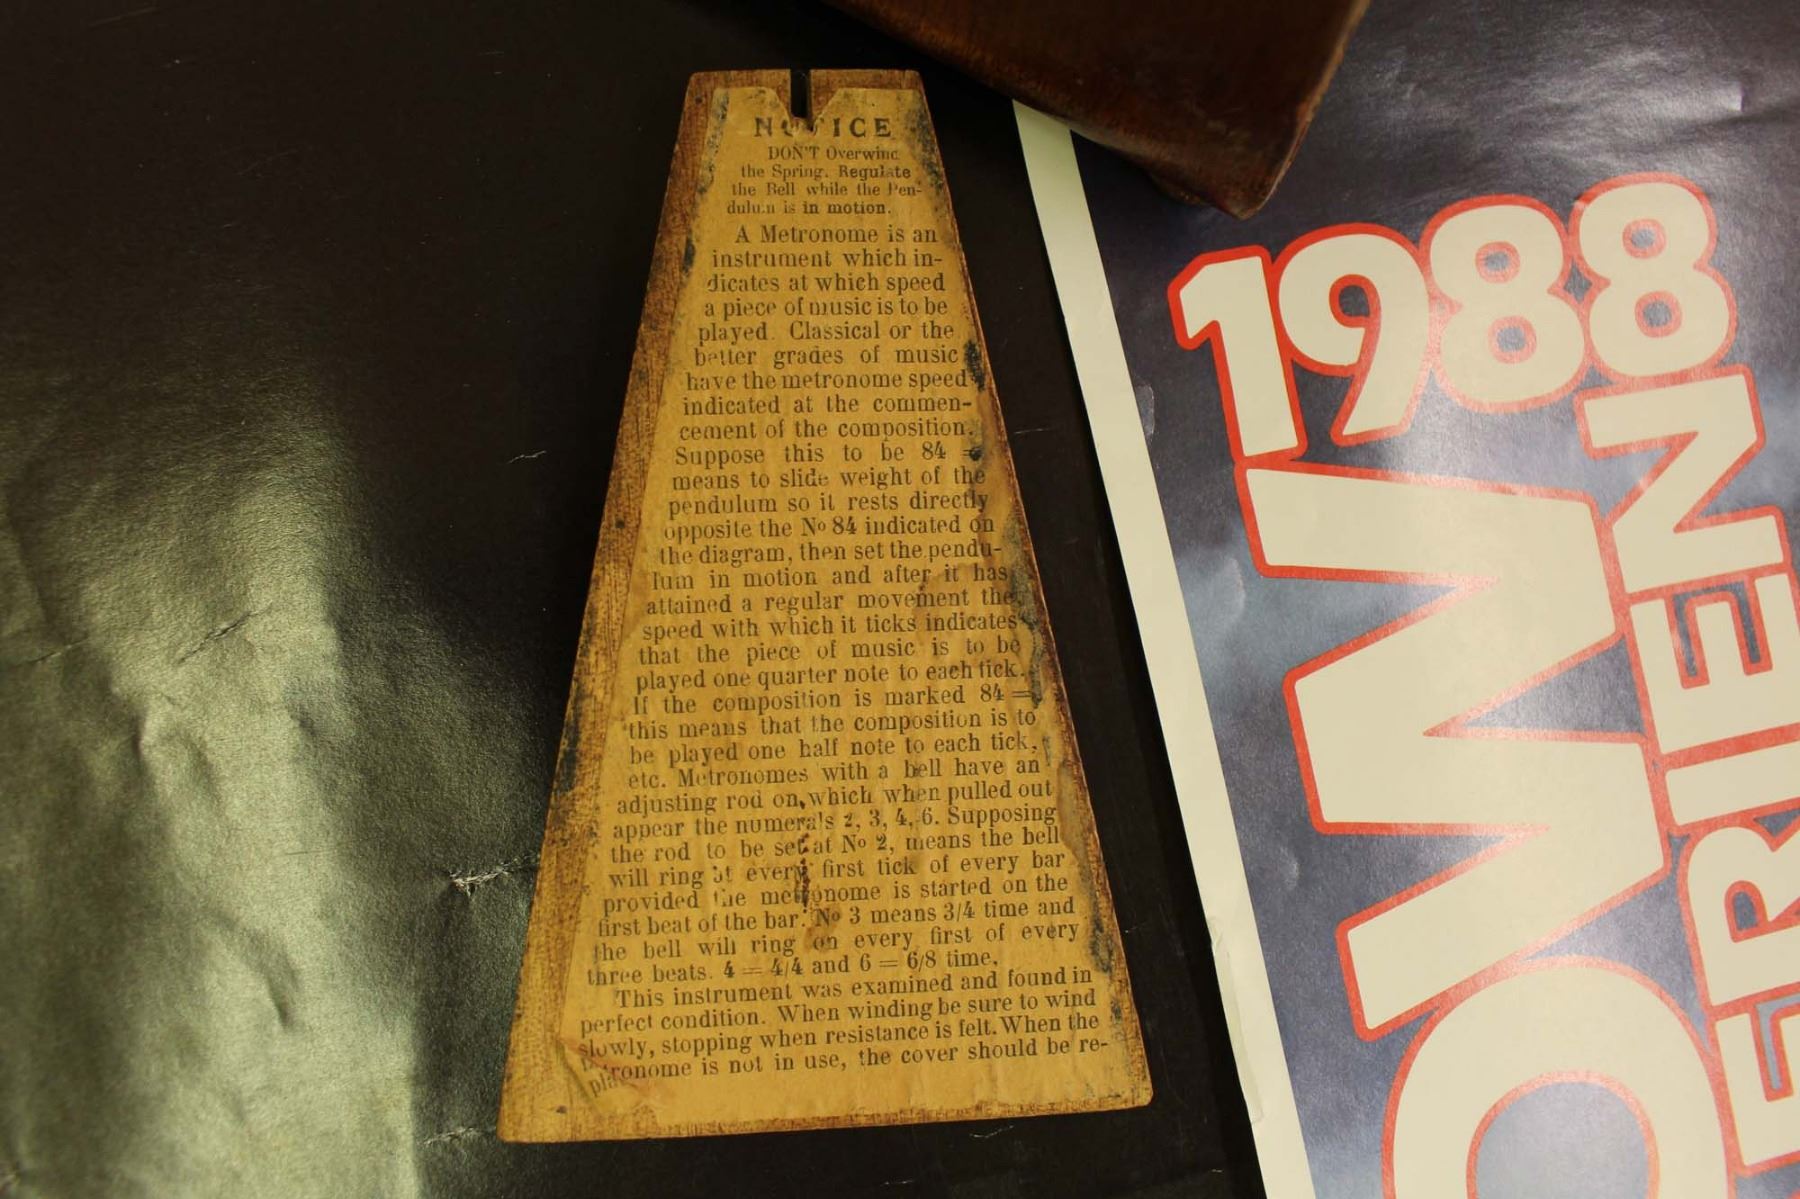 NOTICE
DON'T Overwind
the Spring. Regulate
the Bell while the Pen-
dulum is in motion.
A Metronome is an
instrument which in-
dicates at which speed
a piece of music is to be
played. Classical or the
better grades of music
have the metronome speed
indicated at the commen-
cement of the composition.
Suppose this to be 84 =
means to slide weight of the
pendulum so it rests directly
opposite the No 84 indicated on
the diagram, then set the pendu-
lum in motion and after it has
attained a regular movement the
speed with which it ticks indicates
that the piece of music is to be
played one quarter note to each tick.
If the composition is marked 84 =
this means that the composition is to
be played one half note to each tick,
etc. Metronomes with a bell have an
adjusting rod on, which when pulled out
appear the numerals 2, 3, 4, 6. Supposing
the rod to be set at No 2, means the bell
will ring at every first tick of every bar
provided the metronome is started on the
first beat of the bar. No 3 means 3/4 time and
the bell will ring on every first of every
three beats. 4 = 4/4 and 6 = 6/8 time,
This instrument was examined and found in
perfect condition. When winding be sure to wind
slowly, stopping when resistance is felt. When the
metronome is not in use, the cover should be re-
1988